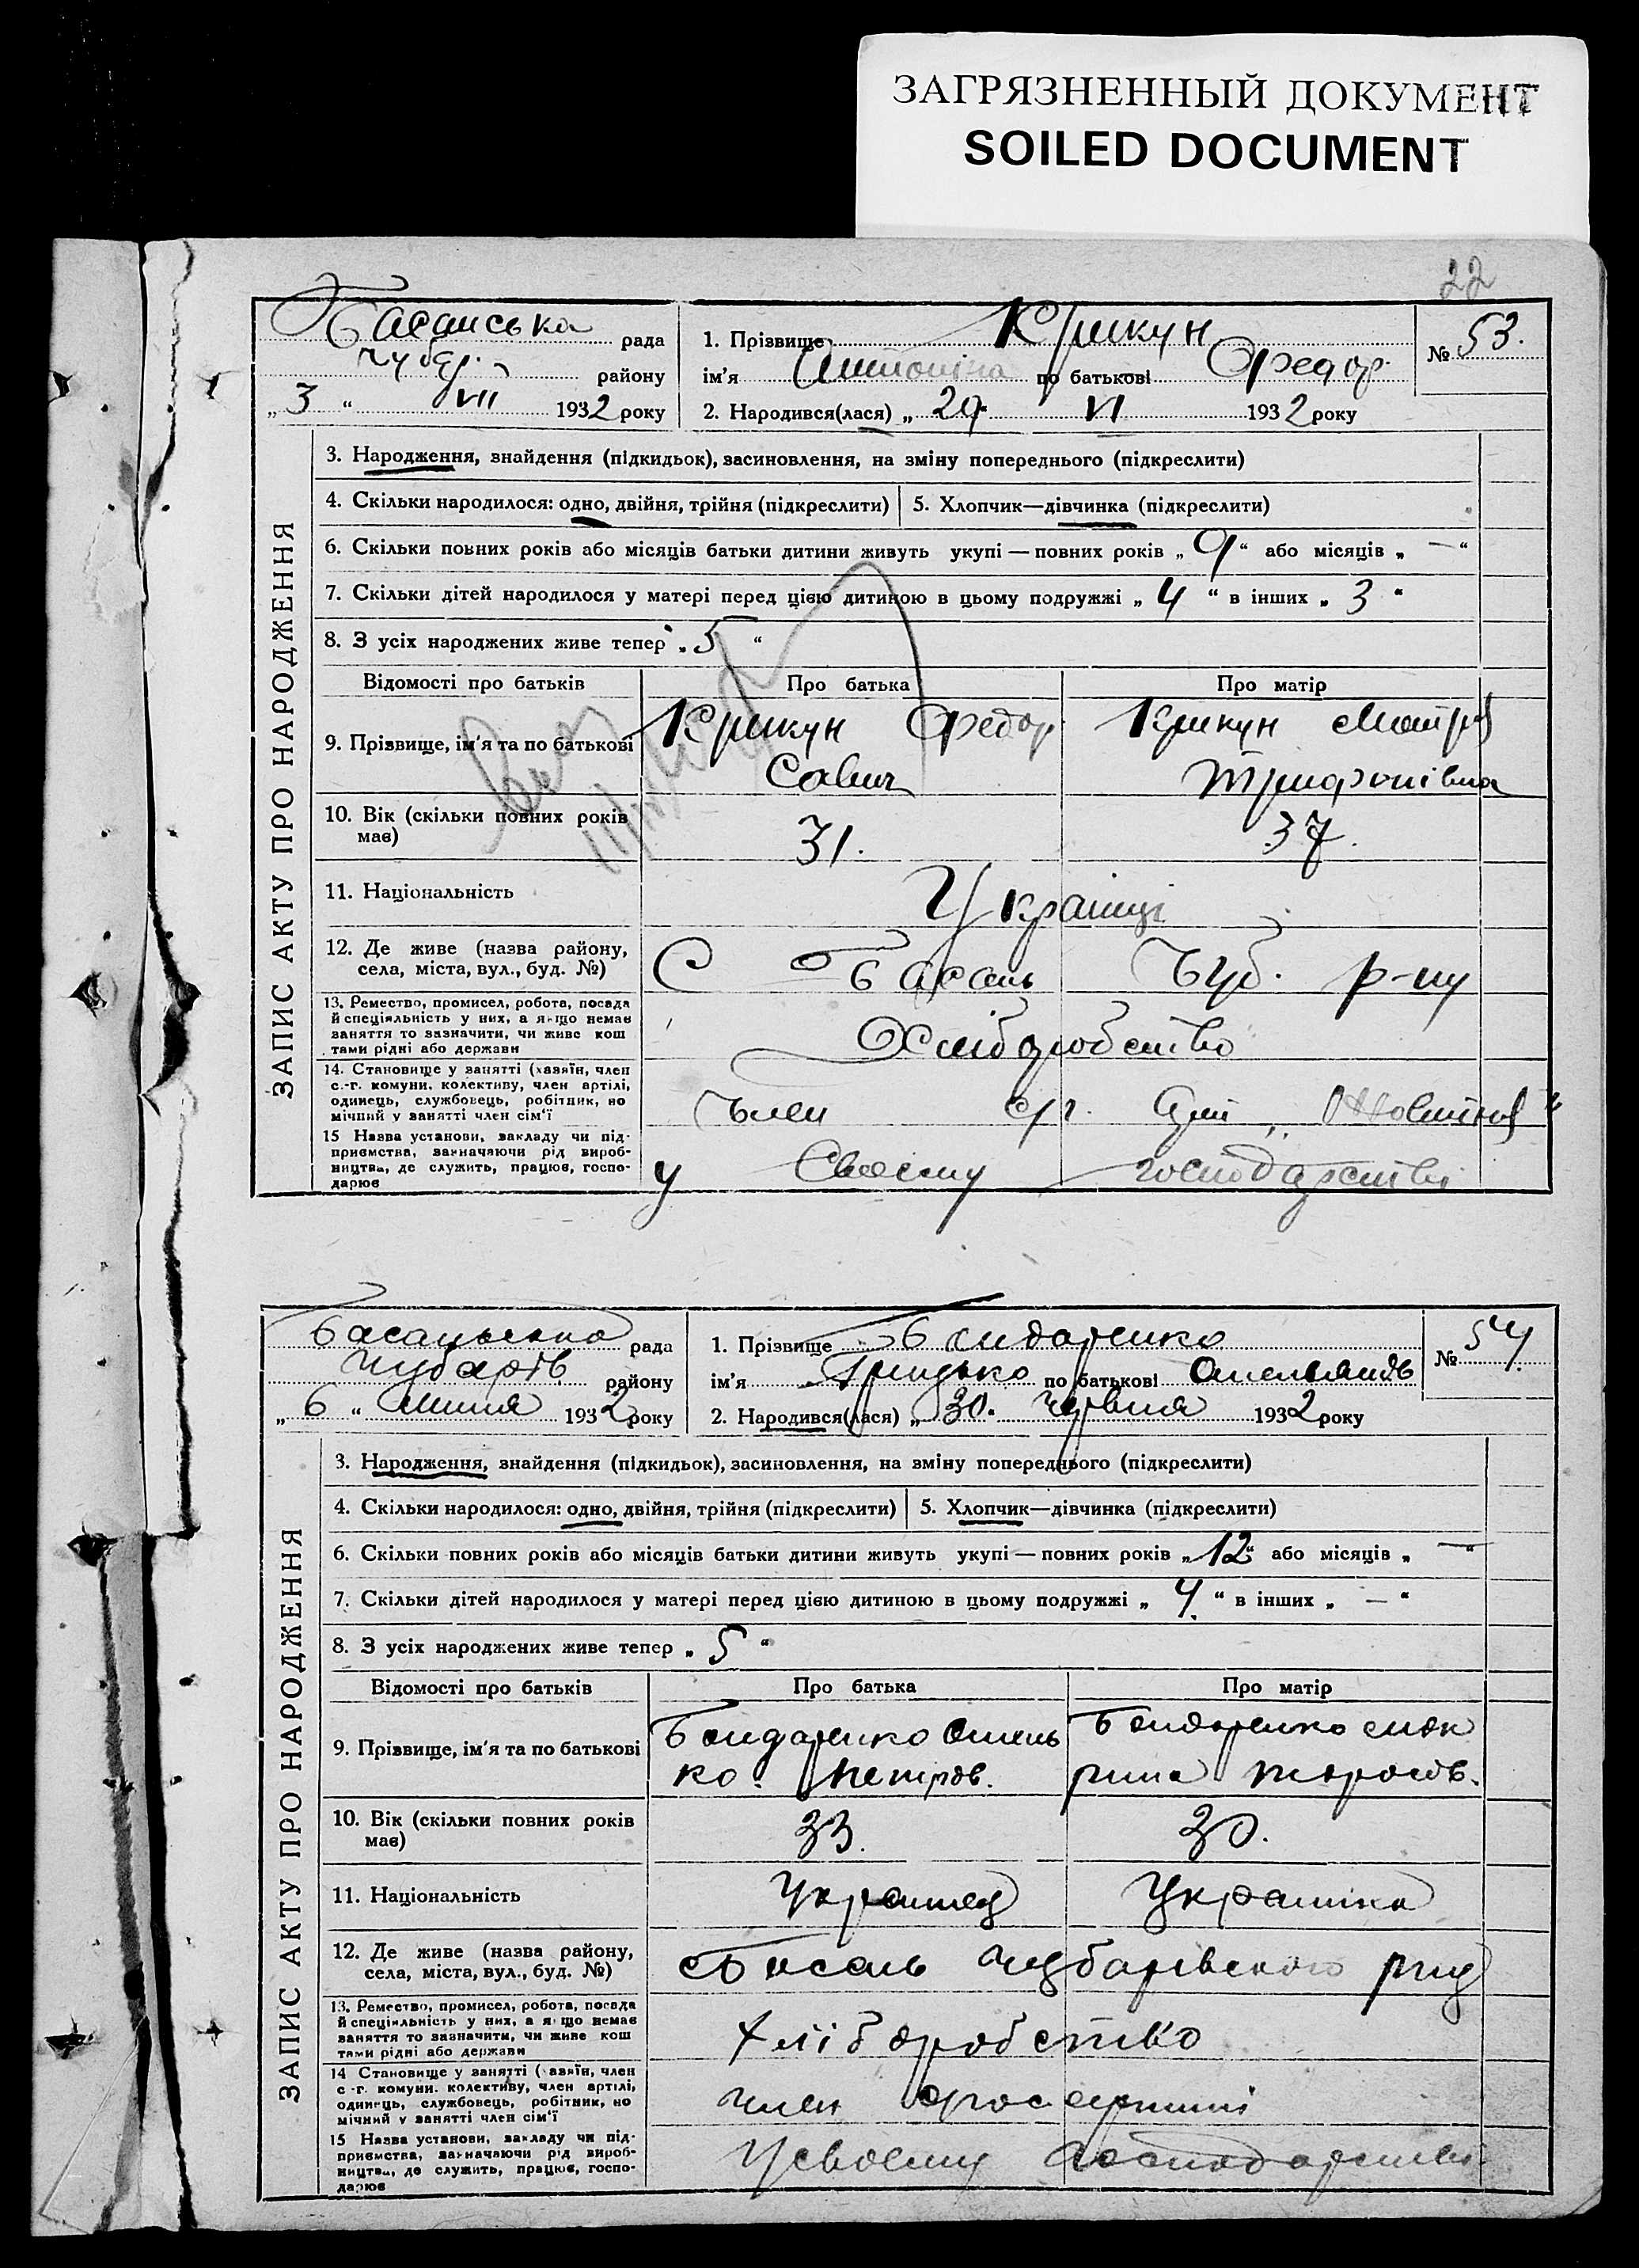 ЗАГРЯЗНЕННЫЙ ДОКУМЕНТ
SOILED DOCUMENT
22
Басанська рада
Чубар. району
„ 3 “ VII 1932 року
1. Прізвище Крикун
ім'я Антоніна по батькові Федор.
2. Народився(лася) „ 29. VI 1932 року
№ 53.
ЗАПИС АКТУ ПРО НАРОДЖЕННЯ
3. Народження, знайдення (підкидьок), засиновлення, на зміну попереднього (підкреслити)
4. Скільки народилося: одно, двійня, трійня (підкреслити) 5. Хлопчик—дівчинка (підкреслити)
6. Скільки повних років або місяців батьки дитини живуть укупі — повних років „ 9 “ або місяців „ — “
7. Скільки дітей народилося у матері перед цією дитиною в цьому подружжі „ 4 “ в інших „ 3 “
8. З усіх народжених живе тепер „ 5 “
Відомості про батьків Про батька Про матір
9. Прізвище, ім'я та по батькові Крикун Федор Крикун Мотря
Савич Трифонівна
10. Вік (скільки повних років
має) 31. 37.
11. Національність Українці
12. Де живе (назва району,
села, міста, вул., буд. №) С Басань Чуб. р-ну
13. Ремество, промисел, робота, посада
й спеціяльність у них, а якщо немає
заняття то зазначити, чи живе кош
тами рідні або держави
Хліборобство
14. Становище у занятті (хазяїн, член
с.-г. комуни, колективу, член артілі,
одинець, службовець, робітник, по
мічний у занятті член сім'ї
Член с/г. арт „Жовтня“
15 Назва установи, закладу чи під-
приємства, зазначаючи рід вироб-
ництва, де служить, працює, госпо-
дарює
у своєму господарстві
Басанська рада
Чубарів району
„ 6 “ липня 1932 року
1. Прізвище Бондаренко
ім'я Грицько по батькові Омельянов
2. Народився(лася) „ 30. червня 1932 року
№ 54.
ЗАПИС АКТУ ПРО НАРОДЖЕННЯ
3. Народження, знайдення (підкидьок), засиновлення, на зміну попереднього (підкреслити)
4. Скільки народилося: одно, двійня, трійня (підкреслити) 5. Хлопчик—дівчинка (підкреслити)
6. Скільки повних років або місяців батьки дитини живуть укупі — повних років „ 12 “ або місяців „ — “
7. Скільки дітей народилося у матері перед цією дитиною в цьому подружжі „ 4. “ в інших „ — “
8. З усіх народжених живе тепер „ 5 “
Відомості про батьків Про батька Про матір
9. Прізвище, ім'я та по батькові Бондаренко Омель Бондаренко мок
ко. Петров. рина
10. Вік (скільки повних років
має) 33. 30.
11. Національність Українец Українка
12. Де живе (назва району,
села, міста, вул., буд. №) с Басань Чубарівського рну
13. Ремество, промисел, робота, посада
й спеціяльність у них, а якщо немає
заняття то зазначити, чи живе кош
тами рідні або держави
хліборобство
14 Становище у занятті (хазяїн, член
с-г. комуни, колективу, член артілі,
одинець, службовець, робітник, по
мічний у занятті член сім'ї
член артілі
15 Назва установи, закладу чи під-
приємства, зазначаючи рід вироб-
ництва, де служить, працює, госпо-
дарює
У своєму господарстві